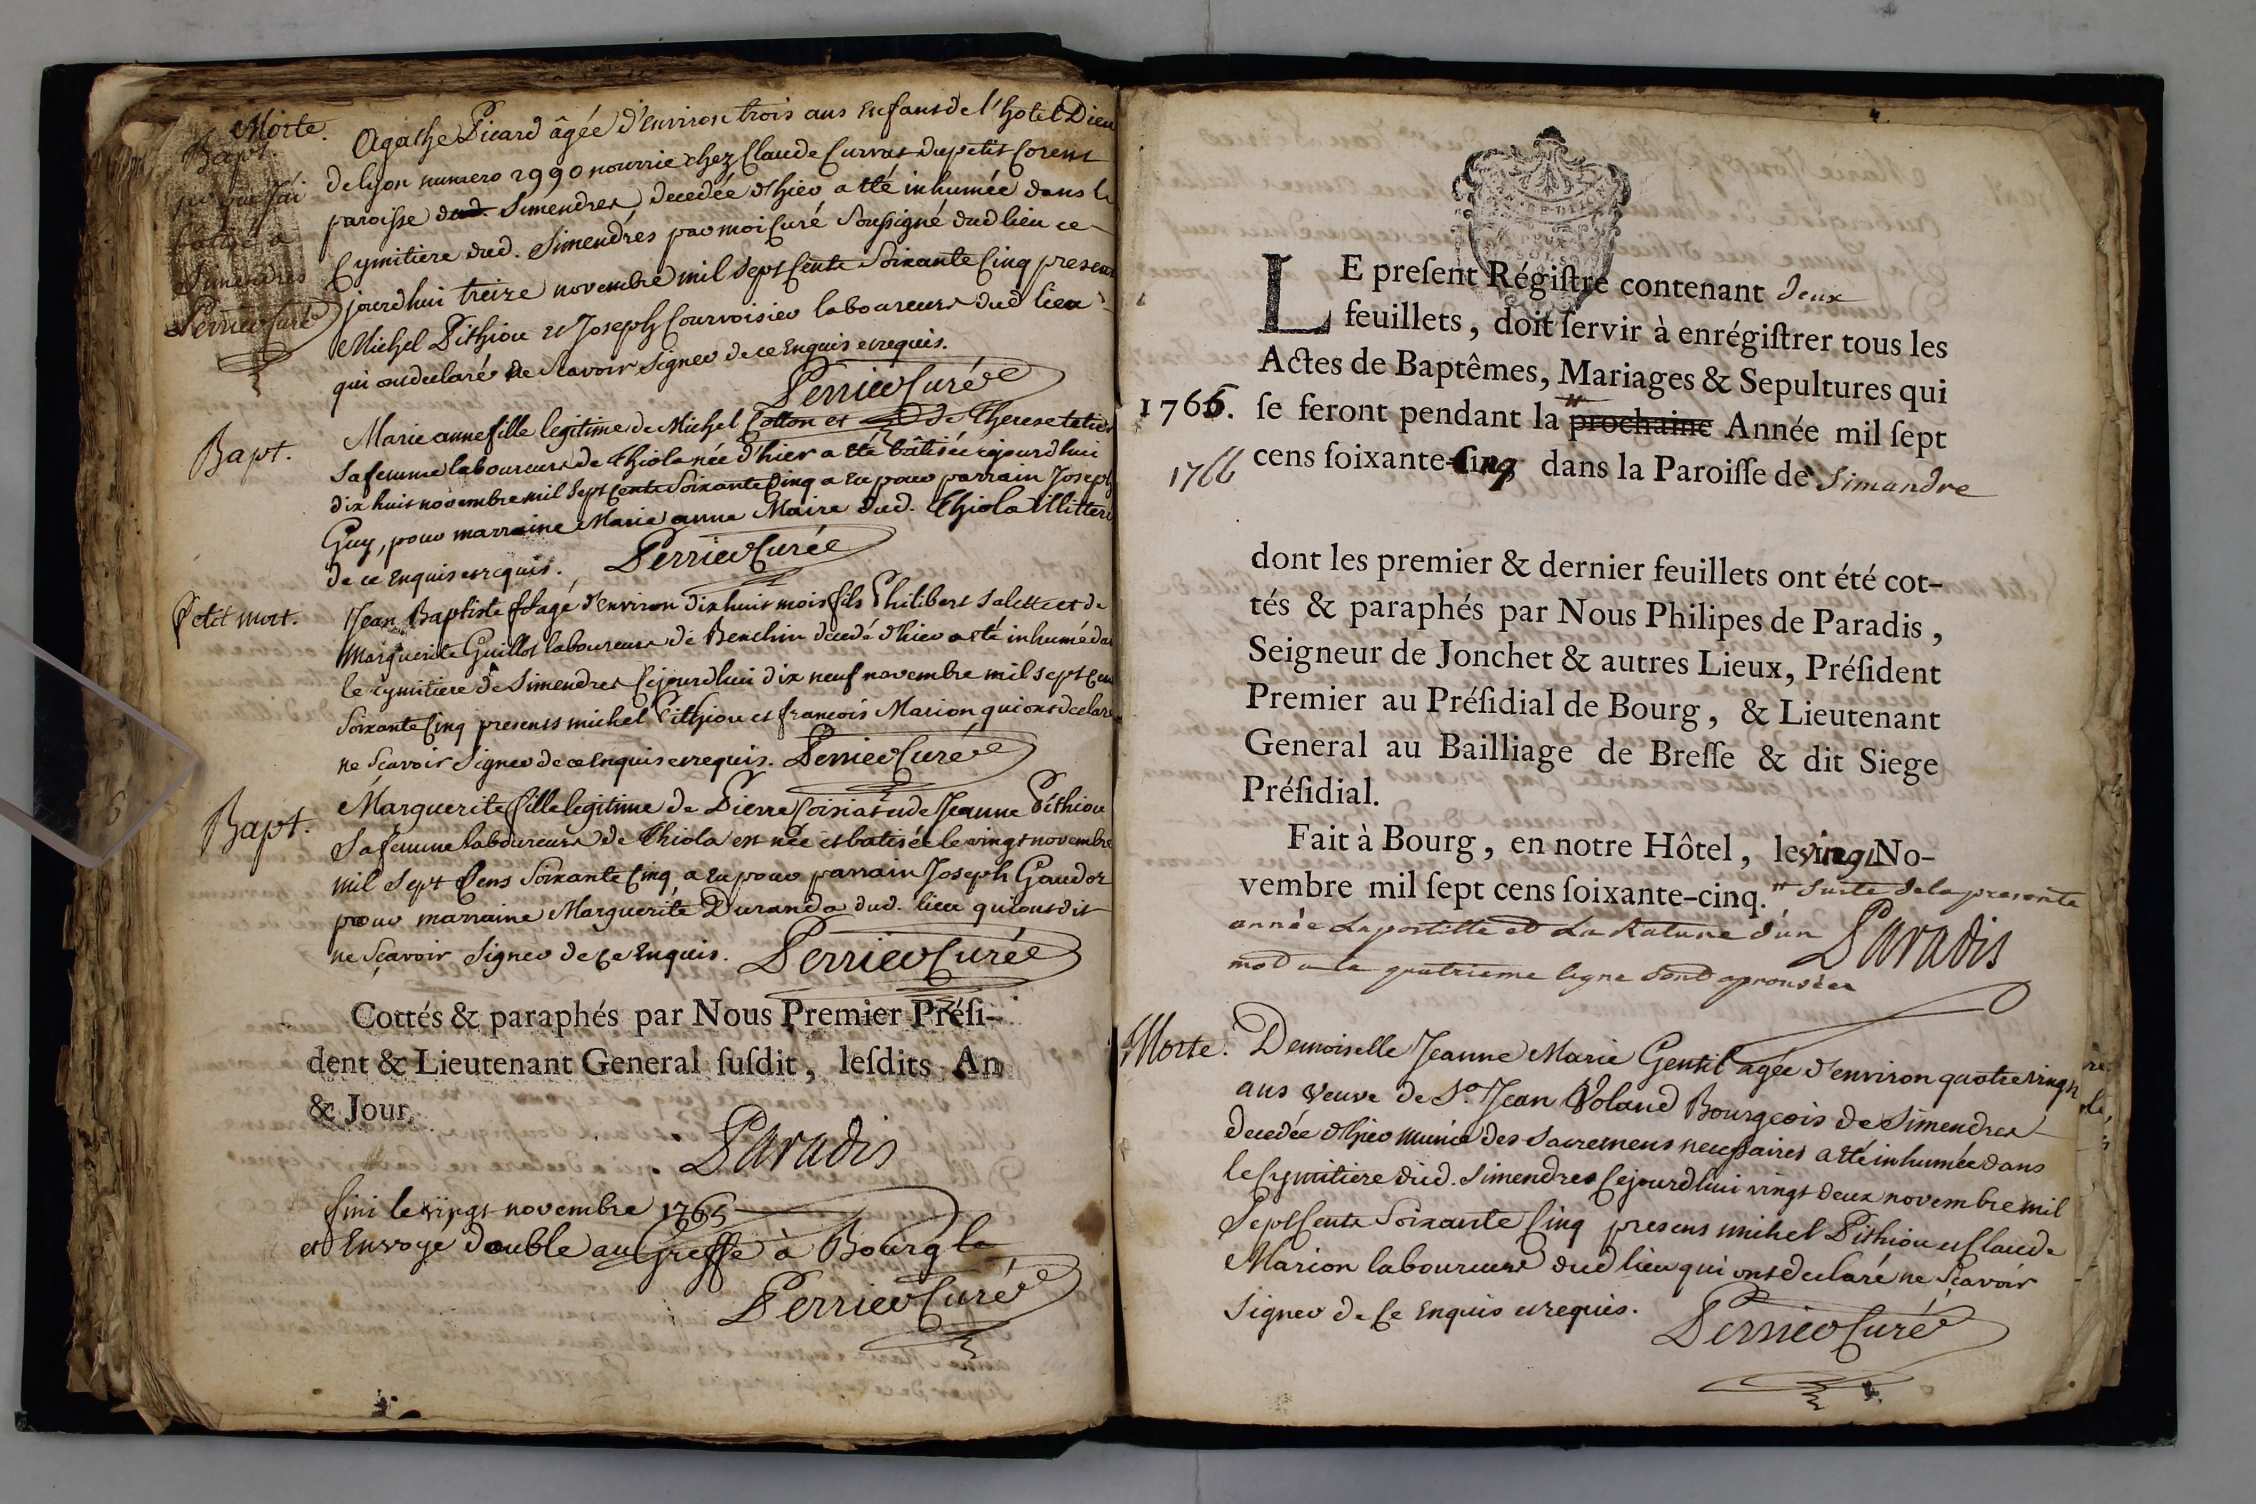 Morte.
Bapt.
Simendres
Perrier Curé
Agathe Picard âgée d'environ trois ans Enfant de l'hotel Dieu
de lyon numero 2990 nourrie chez Claude Curvat du petit Corent
paroisse dud. Simendres decedée d'hier a été inhumée dans le
Cymitiere dud. Simendres par moi Curé Soussigné dud lieu ce
jourdhui treize novembre mil sept Cents Soixante Cinq presens
Michel Pithiou et Joseph Courvoisier laboureurs dud lieu
qui ont declaré ne Scavoir Signer de ce Enquis et requis.
Perrier Curé
Bapt.
Marie anne fille legitime de Michel Cotton et de Therese
sa femme laboureurs de Thiola née d'hier a été bâtisée cejourdhui
dix huit novembre mil Sept Cents Soixante Cinq a eu pour parrain Joseph
Guy, pour marraine Marie anne Maire dud. Thiola illitterés
de ce Enquis et requis. Perrier Curé
Petit mort.
Jean Baptiste agé d'environ dix huit mois fils Philibert Salette et de
Marguerite Guillot laboureurs de Benchin decedé d'hier a été inhumé dans
le cymitiere de Simendres Cejourdhui dix neuf novembre mil sept Cens
Soixante Cinq presents michel Pithiou et francois Marion qui ont declaré
ne Scavoir Signer de ce Enquis et requis. Perrier Curé
Bapt.
Marguerite fille legitime de Pierre Coisiat et de Jeanne Péthiou
Sa femme laboureurs de Thiola est née et batisée le vingt novembre
mil Sept Cens Soixante Cinq a eu pour parrain Joseph Gaudoz
pour marraine Marguerite Duranda dud. lieu qui ont dit
ne Sçavoir Signer de Ce Enquis. Perrier Curé
Cottés & paraphés par Nous Premier Prési-
dent & Lieutenant General susdit, lesdits An
& Jour.
Paradis
fini le vingt novembre 1765
et Envoyé double au Greffe à Bourg le
Perrier Curé
LE present Régistre contenant deux
feuillets, doit servir à enrégistrer tous les
Actes de Baptêmes, Mariages & Sepultures qui
1766. se feront pendant la prochaine Année mil sept
1766 cens soixante-cinq dans la Paroisse de Simandre
dont les premier & dernier feuillets ont été cot-
tés & paraphés par Nous Philipes de Paradis,
Seigneur de Jonchet & autres Lieux, Président
Premier au Présidial de Bourg, & Lieutenant
General au Bailliage de Bresse & dit Siege
Présidial.
Fait à Bourg, en notre Hôtel, le vingt No-
vembre mil sept cens soixante-cinq. # Suite de la presente
année La postille et La Rature d'un
Paradis
mot a la quatrieme ligne sont aprouvées
Morte.
Demoiselle Jeanne Marie Gentil agée d'environ quatre vingt
ans Veuve de Sr. Jean Voland Bourgeois de Simendres
decedée d'hier munie des Sacremens necessaires a été inhumée dans
le Cymitiere dud. Simendres Cejourdhui vingt deux novembre mil
Sept Cents Soixante Cinq presens michel Pithiou et Claude
Marion laboureurs dud lieu qui ont declaré ne Sçavoir
Signer de Ce Enquis et requis.
Perrier Curé